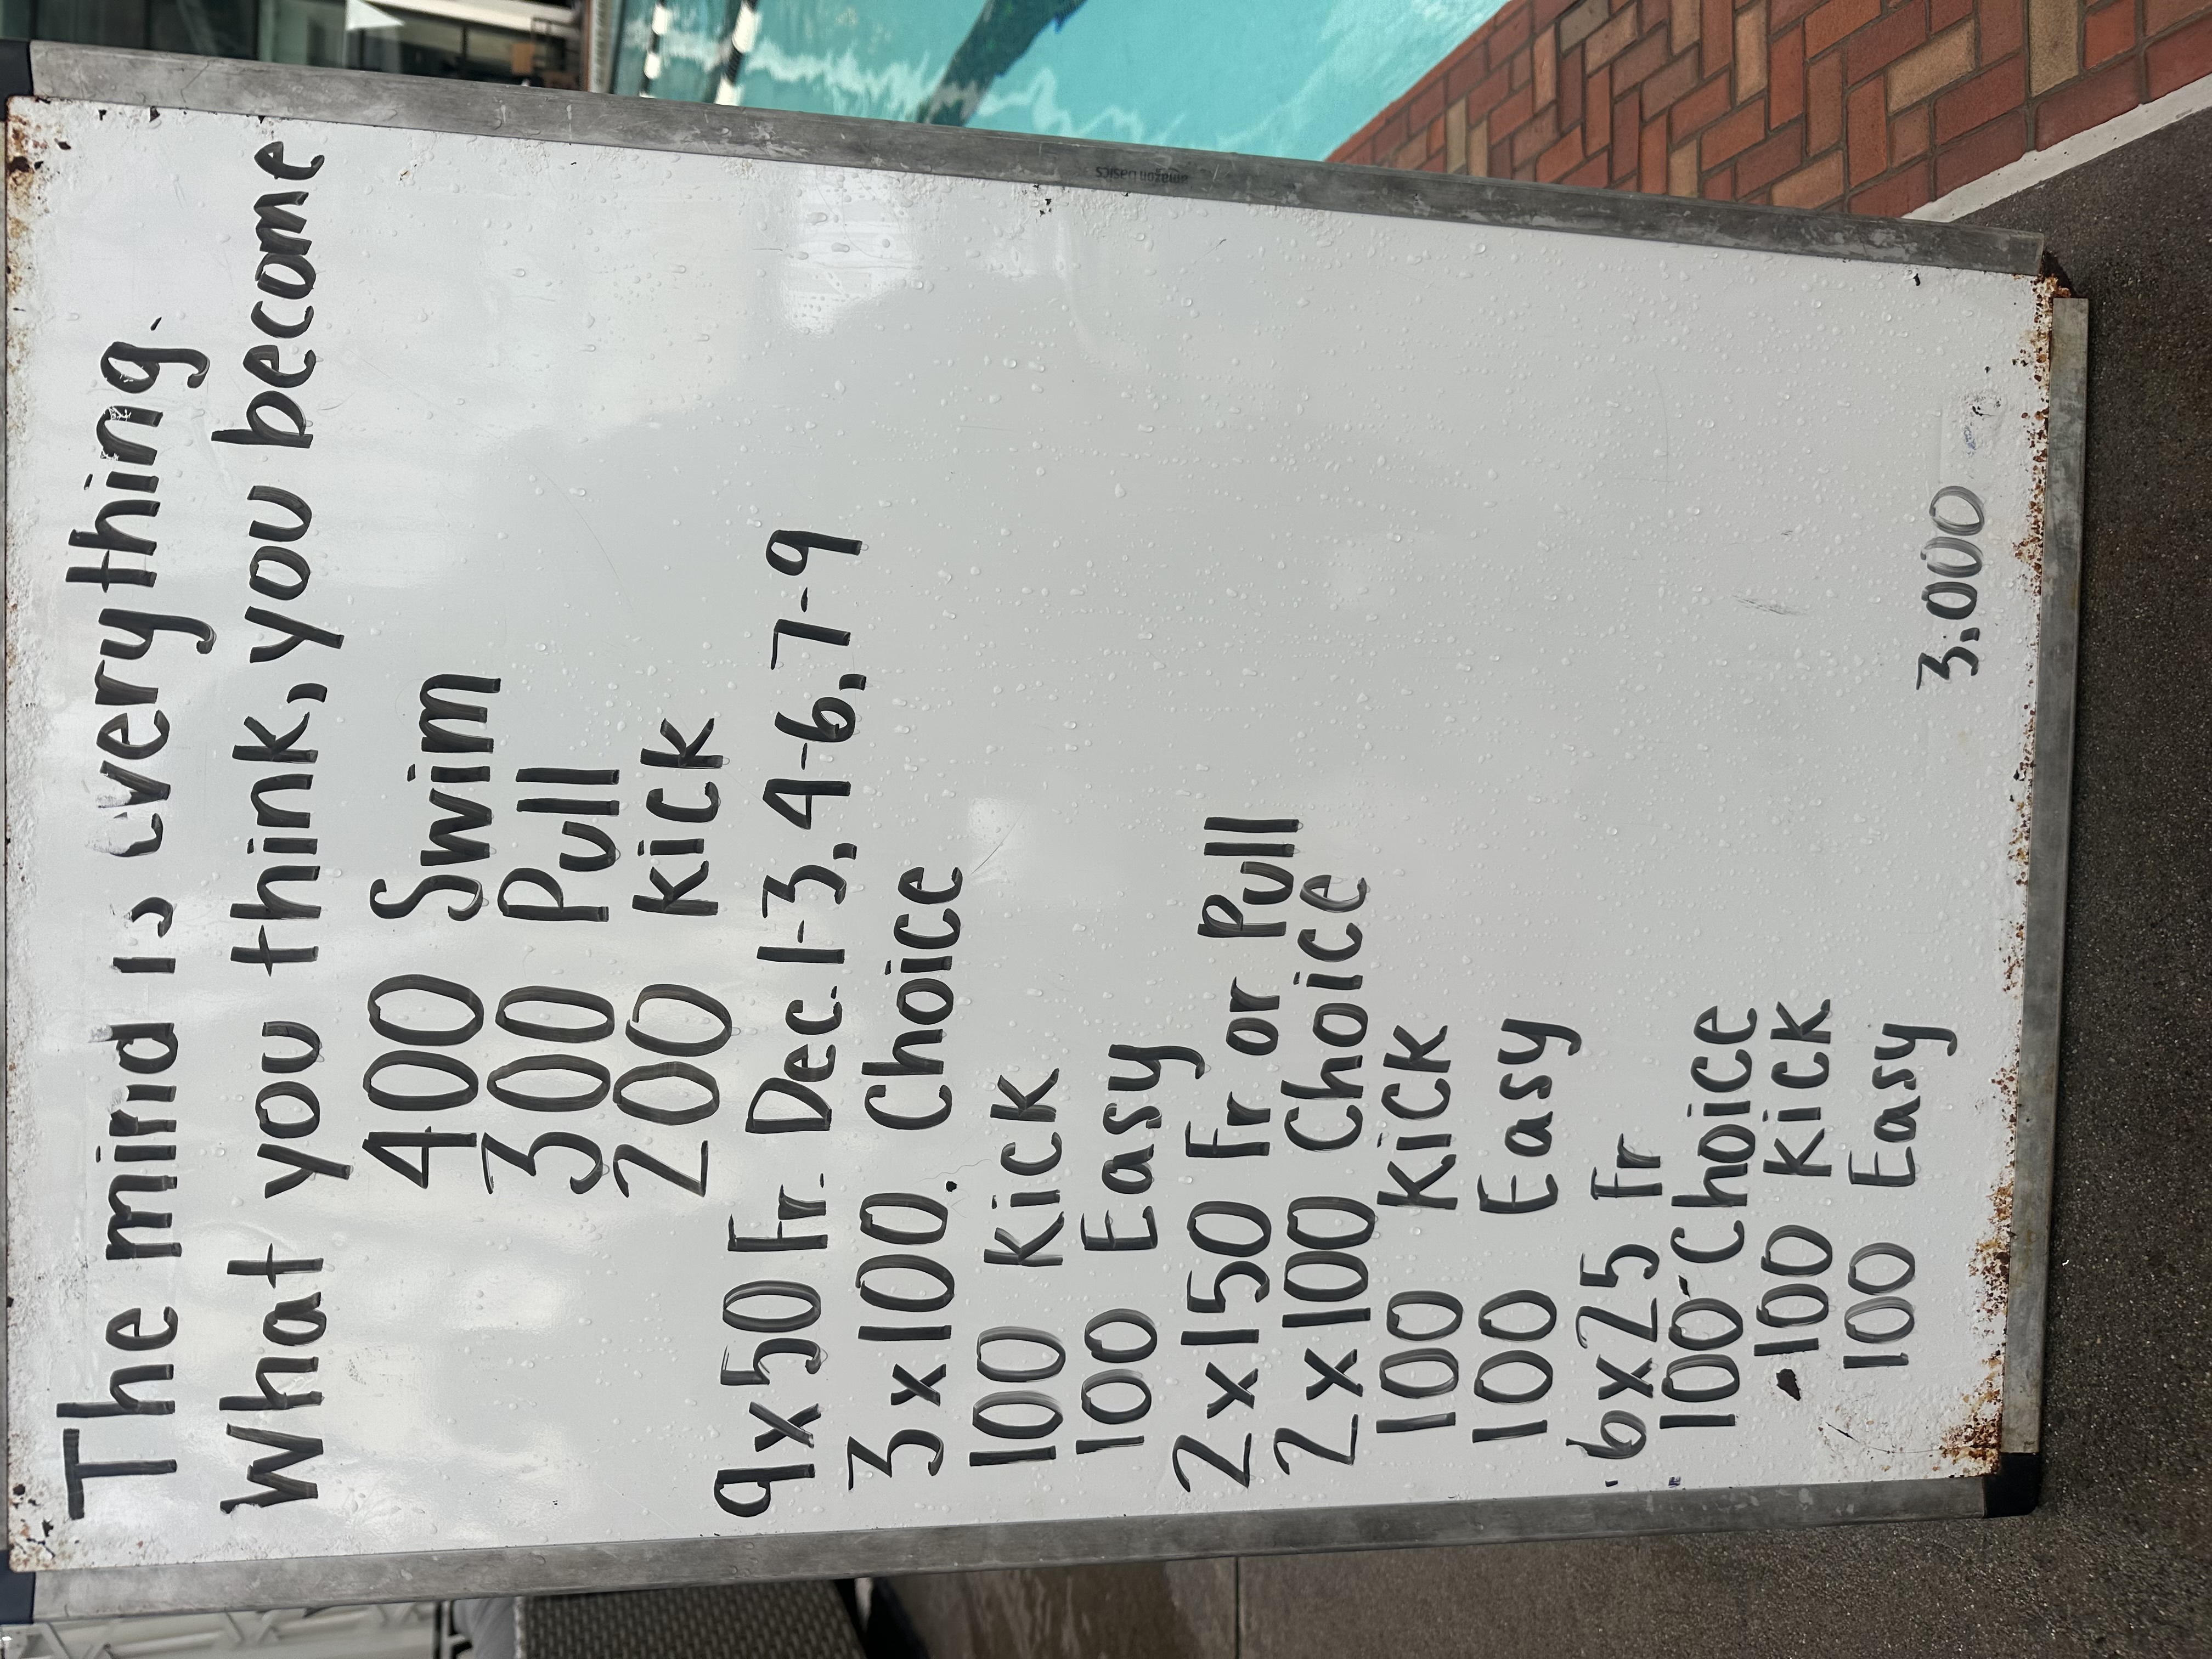 The mind is everything.
What you think, you become
400 Swim
300 Pull
200 Kick
9x50 Fr. Dec. 1-3, 4-6, 7-9
3x100. Choice
100 Kick
100 Easy
2x150 Fr or Pull
2x100 Choice
100 Kick
100 Easy
6x25 Fr
100 Choice
100 Kick
100 Easy
3,000
amazon basics